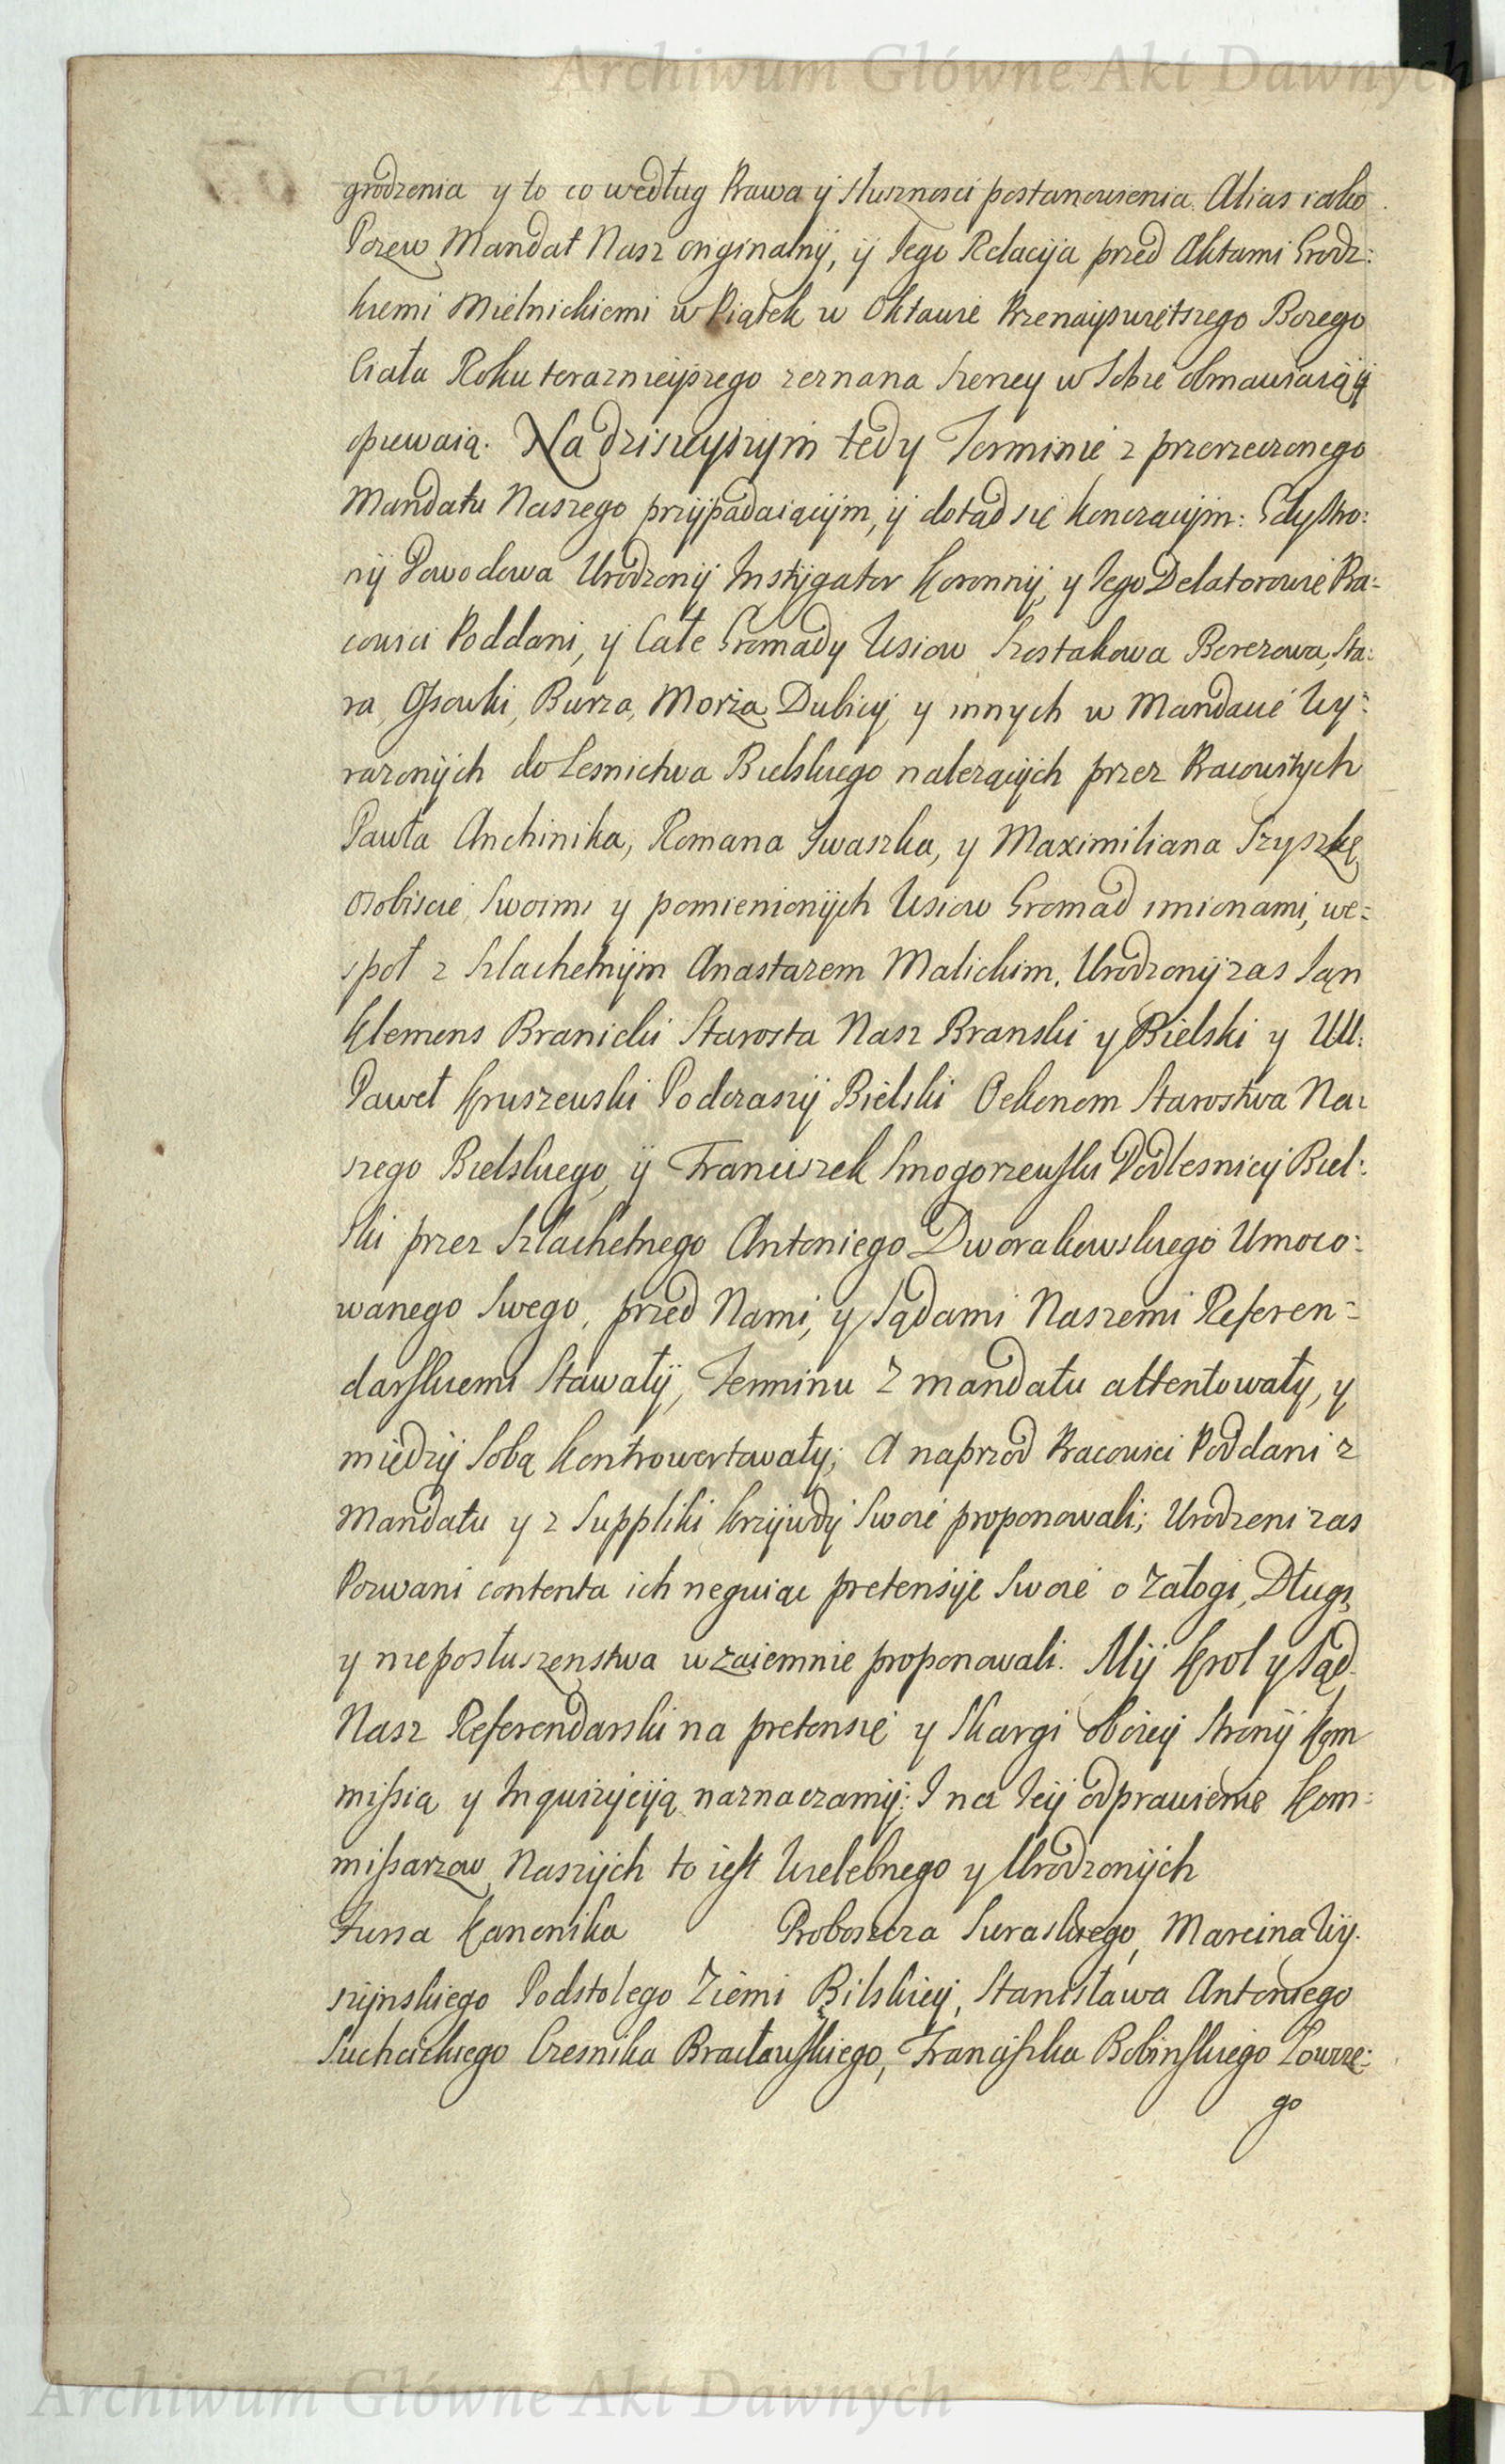 Archiwum Główne Akt Dawnych
grodzenia y to co według Prawa ij słusznosci postanowienia. Alias iako
Pozew Mandat Nasz originalnij, ij Iego Relacija przed Aktami Grodz:
kiemi Mielnickiemi w Piątek w Oktawie Przenayswiętszego Bozego
Ciała Roku teraznieijszego zeznana szerzey w Sobie obmawiaią ij
opiewaią. Na dzisieyszym tedy Terminie z przerzeczonego
Mandatu Naszego przijpadaiącijm, ij dotąd się konczącijm: Gdy Stro:
nij Powodowa Urodzonij Instijgator Koronnij, y Iego Delatorowie Pra:
cowici Poddani, ij Całe Gromady Wsiow Szostakowa Berezowa, Sta:
ra, Ossowki, Burza, Morża, Dubicij y innych w Mandacie Wy:
razonijch do Lesnictwa Bielskiego należącijch przez Pracowitych
Pawła Anchinika, Romana Iwaszka, y Maximiliana Szyszkę
osobiscie, Swoimi y pomienionijch Wsiow Gromad imionami, we:
społ z Szlachetnijm Anastazem Malickim. Urodzonij zas Jan
Klemens Branicki Starosta Nasz Branski y Bielski y Ur:
Paweł Kruszewski Podczaszij Bielski Oekonom Starostwa Na:
szego Bielskiego, ij Franciszek Smogorzewski Podlesniczij Biel:
ski przez Szlachetnego Antoniego Dworakowskiego Umoco:
wanego Swego, przed Nami, y Sądami Naszemi Referen:
darskiemi Stawałij, Terminu z mandatu attentowały, y
międzij Sobą kontrowertowały; A naprzod Pracowici Poddani z
Mandatu y z Suppliki krzijwdy Swoie proponowali; Urodzeni zas
Pozwani contenta ich neguiąc pretensije Swoie o załogi, Długi,
y nieposłuszenstwa wzaiemnie proponowali. Mij Krol y Sąd
Nasz Referendarski na pretensie y Skargi oboiey stronij Kom
missią y Inquizijciją naznaczamij; I na Ieij odprawienie Kom:
missarzow Naszijch to iest Wielebnego y Urodzonijch
Jussa Kanonika Proboszcza Suraskiego, Marcina Wij:
szijnskiego Podstolego Ziemi Bilskiey, Stanisława Antoniego
Suchcickiego Czesnika Bracławskiego, Franciszka Bobinskiego Łowcze:
go
Archiwum Główne Akt Dawnych